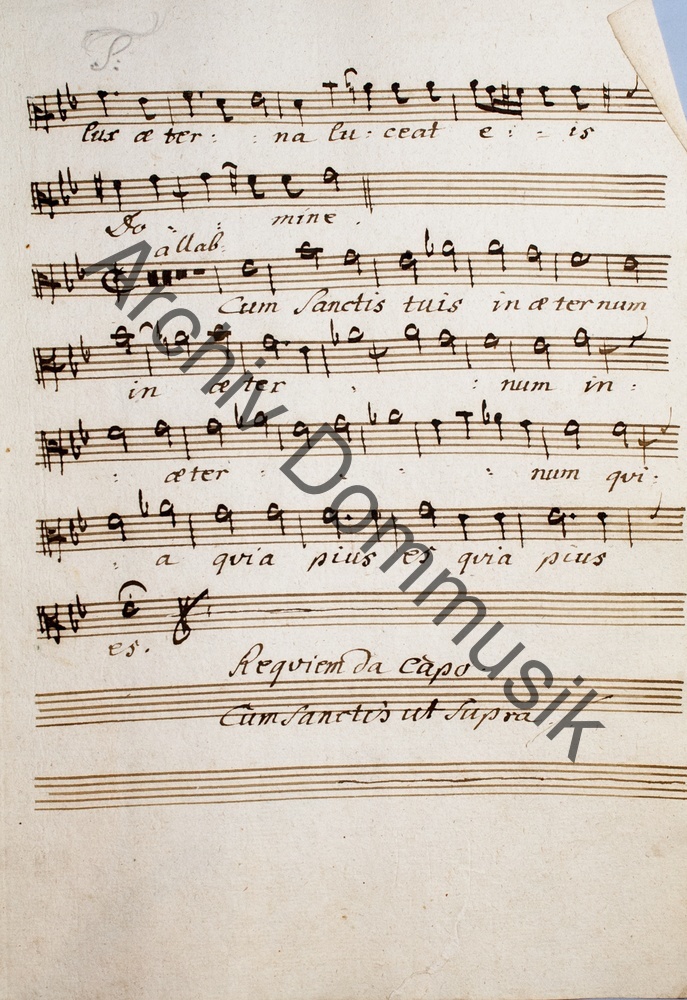 T:
lux æ ter : : na lu : ceat e : - is
Do - : mine .
allab:
Cum Sanctis tuis in æ ter num
in æ ter : : num in :
: æter : : : : num qui :
: a quia pius es quia pius
es.
Requiem da Capo
Cum Sanctis ut Supra
Archiv Dommusik